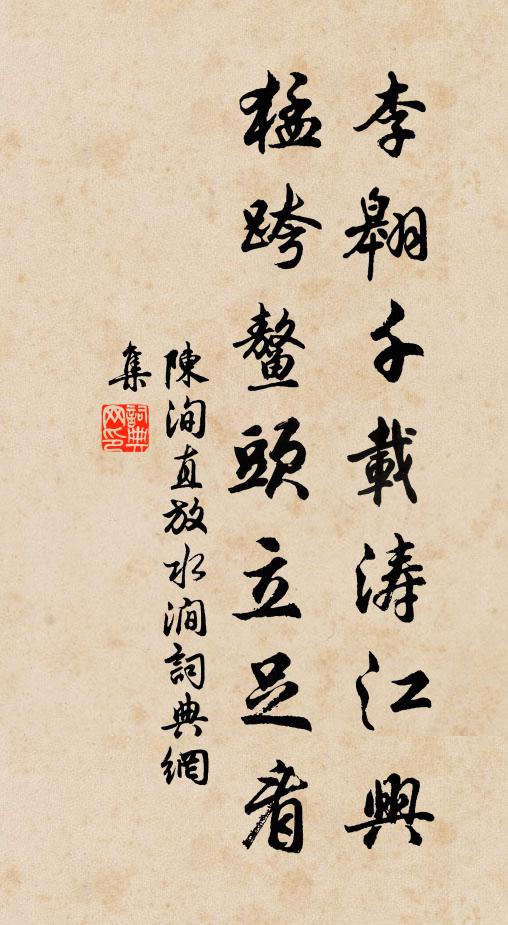 李翱千載濤江興
猛跨鰲頭立足看
陳洵直放水澗詞典網
集
詞典网印